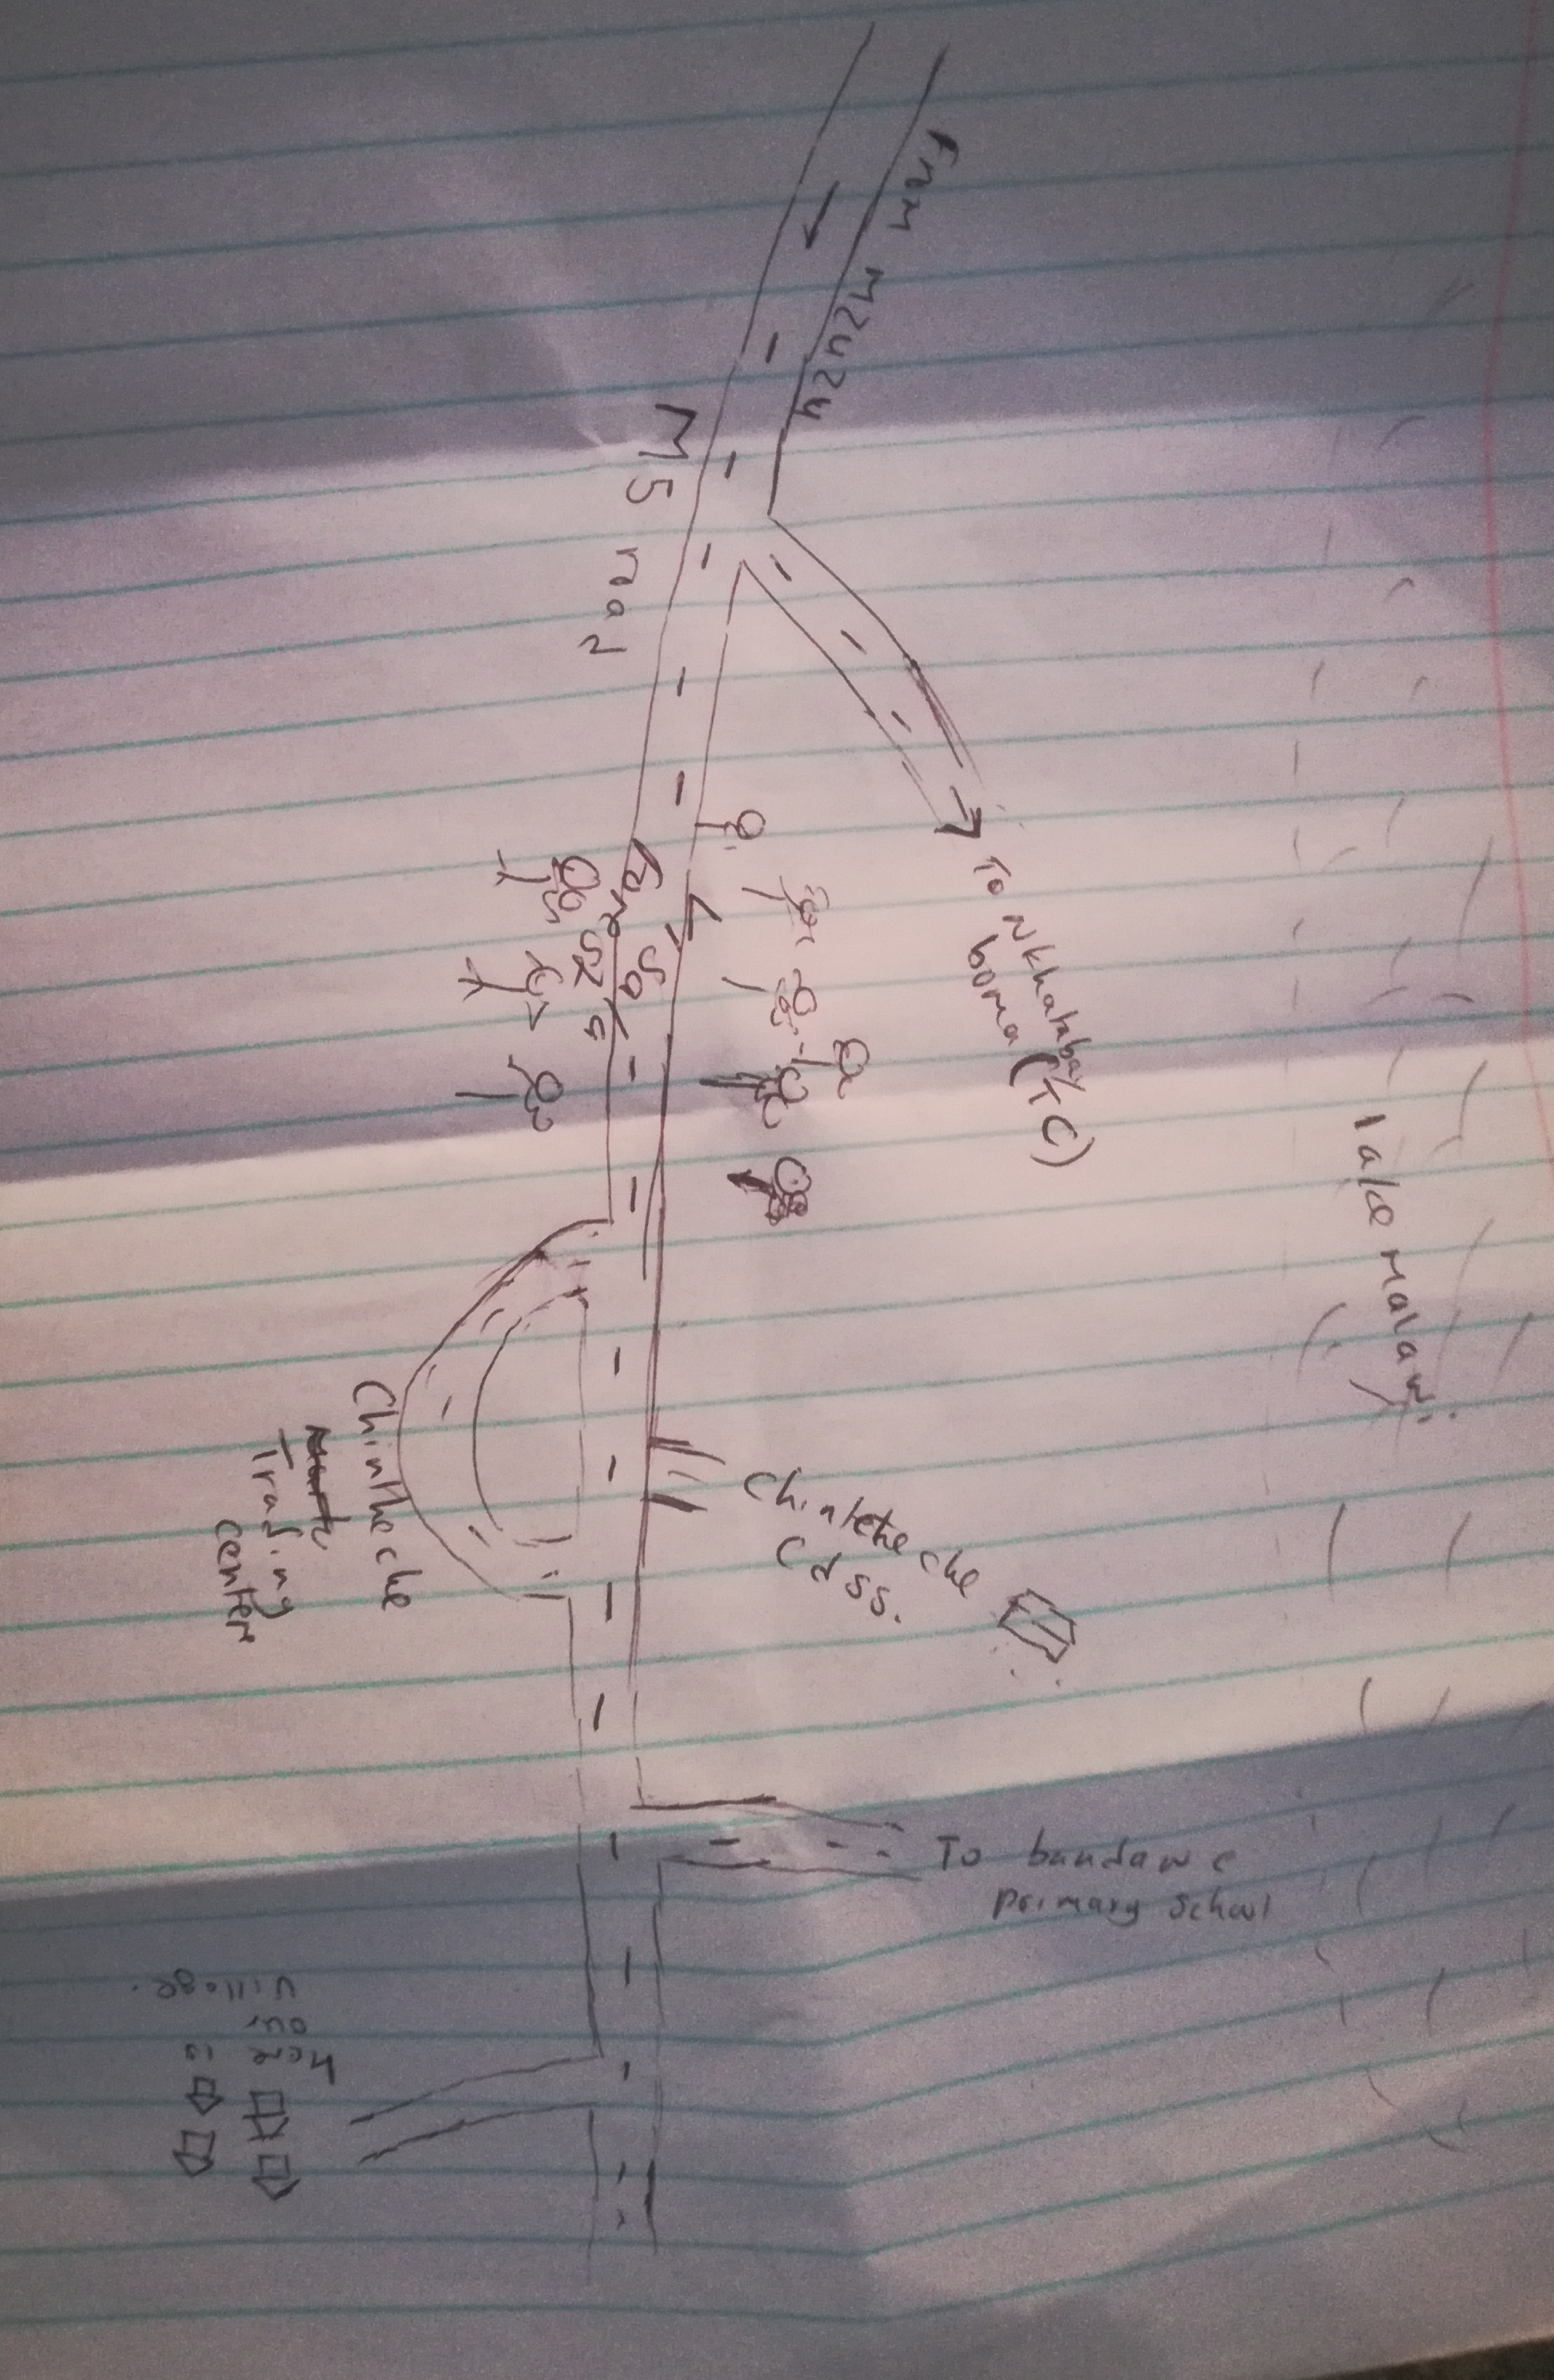 From Mzuzu
M5
road
To Nkhatabay
boma (TC)
lake Malawi.
Chintheche
Trading
center
Chintheche
Cdss.
To bandawe
primary school
here is
our
village.